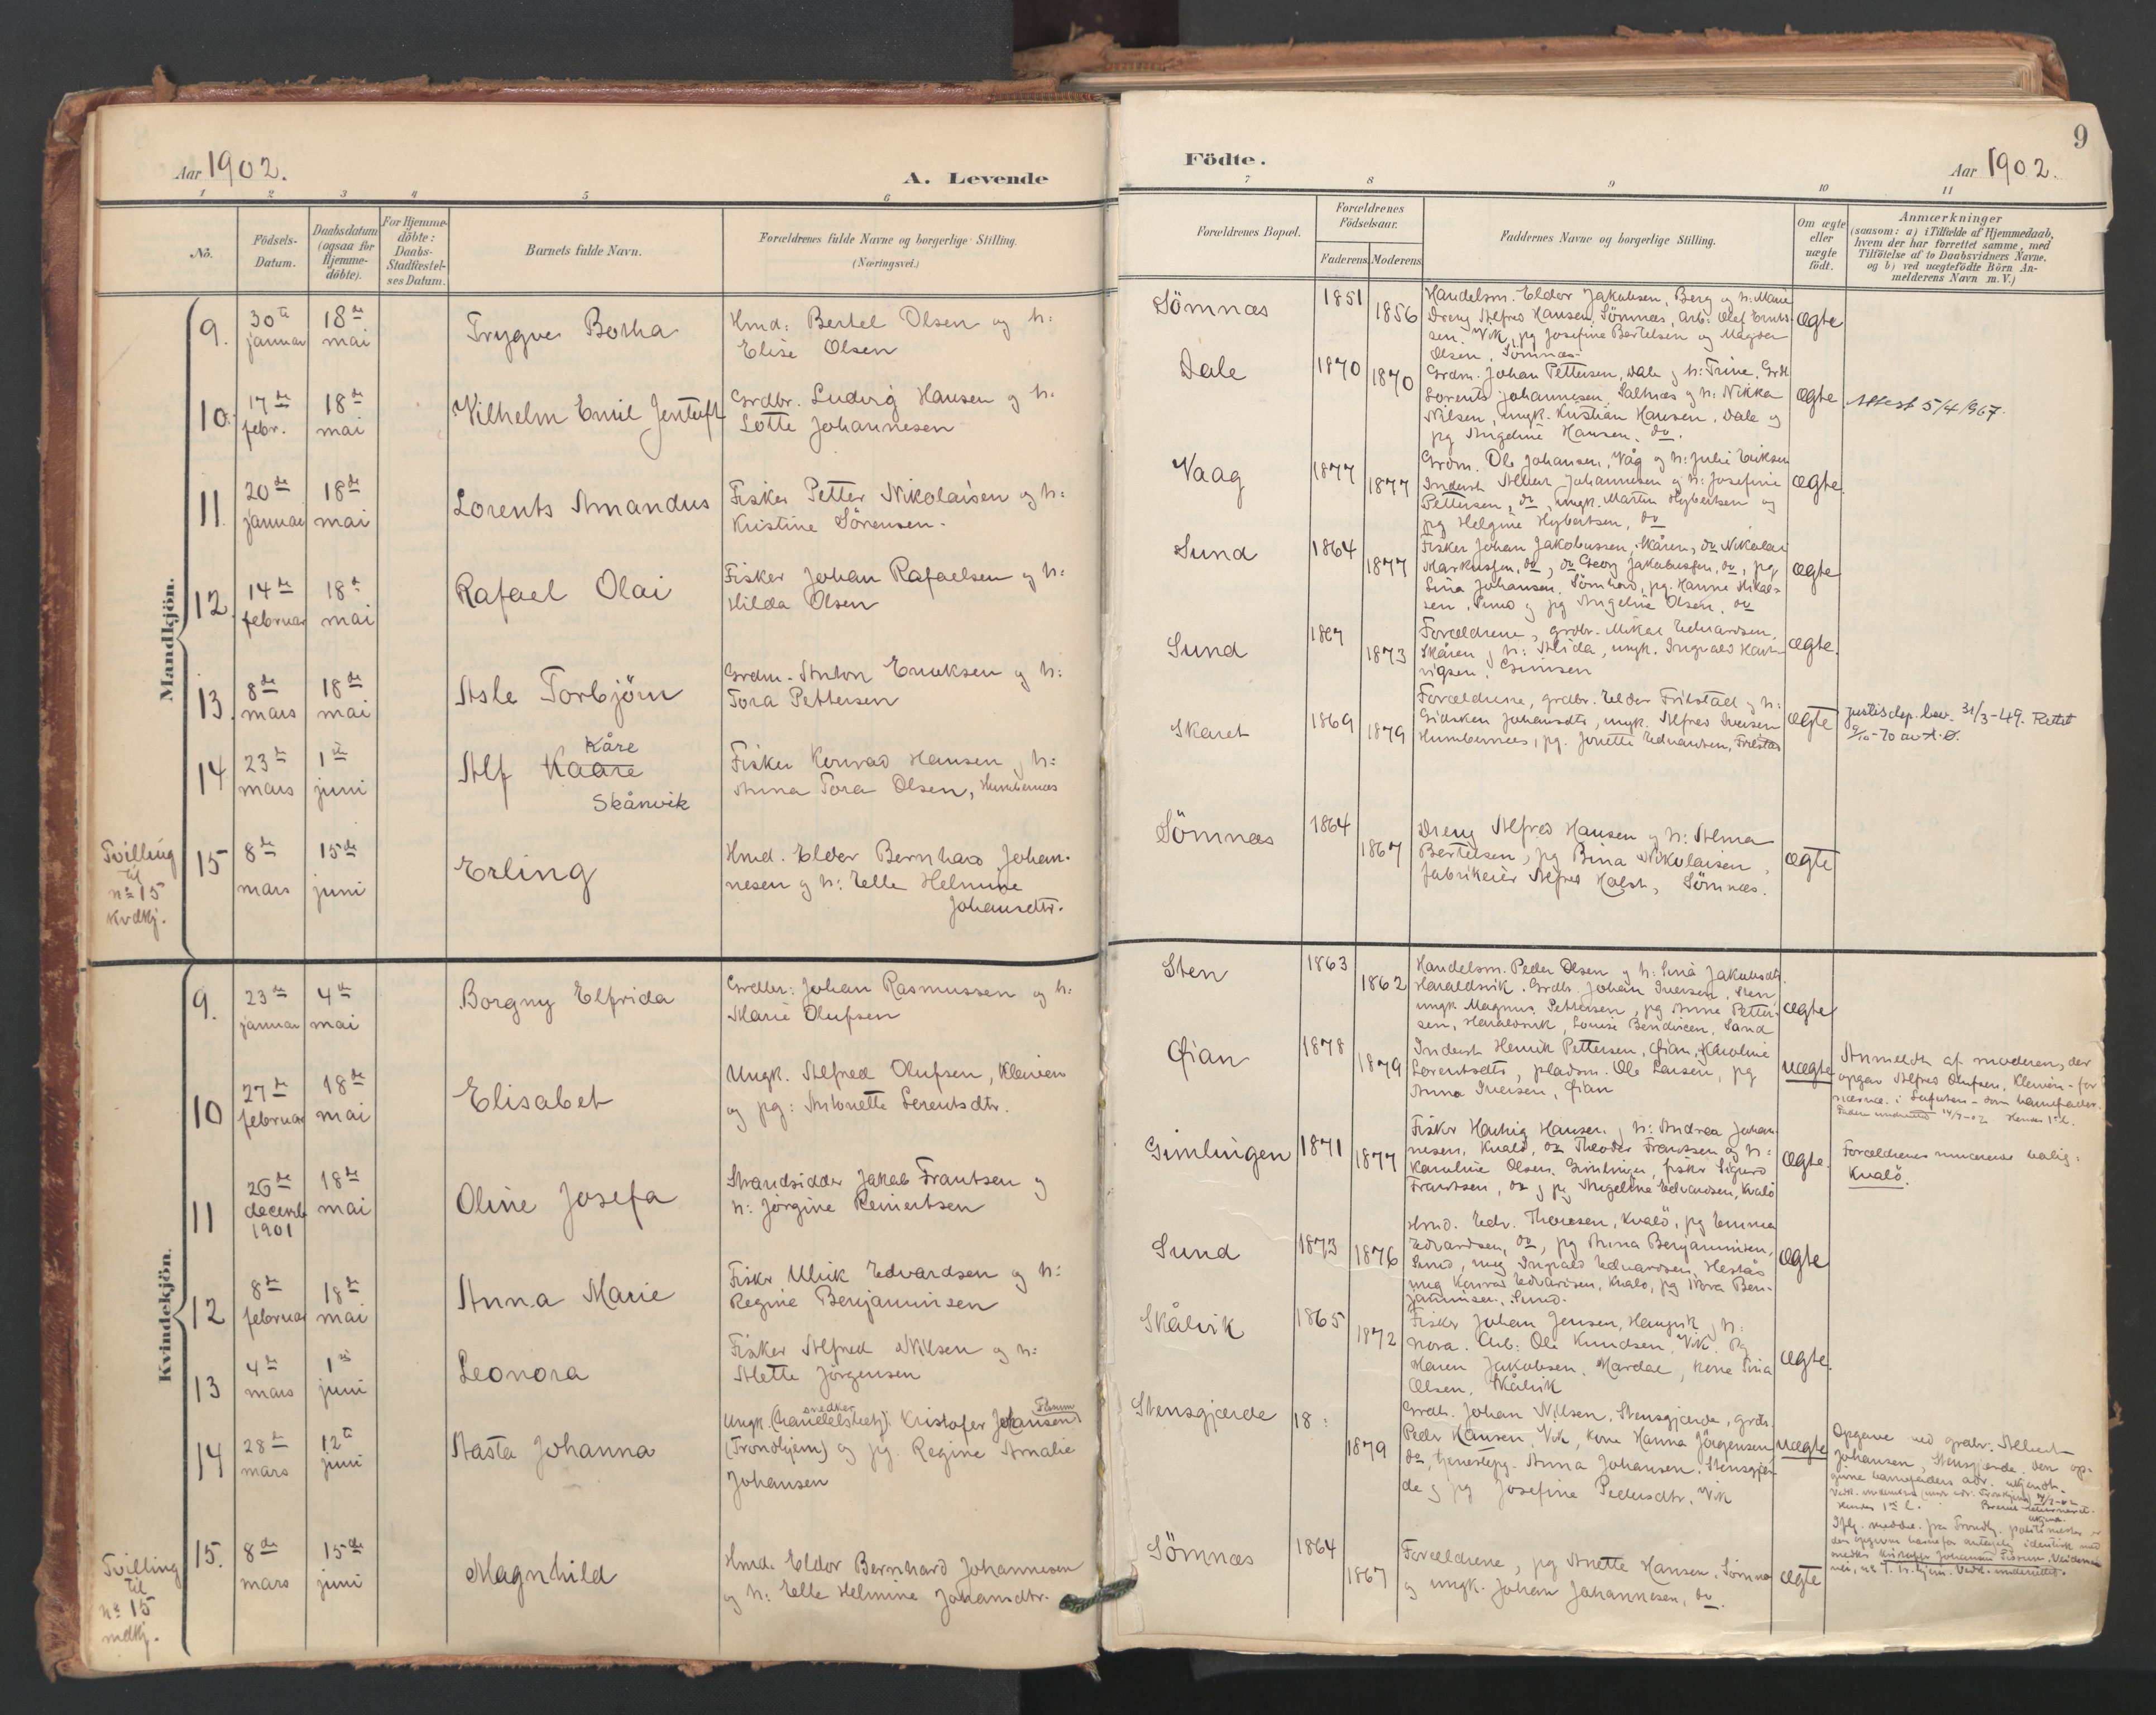 Aar 1902.
A. Levende
1 2 3 4 5 6
No.
Födsels-
Datum.
Daabsdatum
(ogsaa for
Hjemme-
döbte).
For Hjemme-
döbte:
Daabs-
Stadfæstel-
ses Datum.
Barnets fulde Navn.
Forældrenes fulde Navne og borgerlige Stilling.
(Næringsvei.)
Mandkjön.
9. 30te januar 18de mai Trygve Botha
Hmd: Bertel Olsen og h:
Elise Olsen
10. 17de febr. 18de mai Vilhelm Emil Jentuft
Grdbr. Ludvig Hansen og h:
Lotte Johannesen
11. 20de januar 18de mai Lorents Amandus
Fisker Petter Nikolaisen og h:
Kristine Sörensen.
12. 14de februar 18de mai Rafael Olai
Fisker Johan Rafaelsen og h:
Hilda Olsen
13. 8de mars 18de mai Asle Torbjörn
Grdm. Anton Enoksen og h:
Tora Pettersen
14. 23de mars 1ste juni Alf Kaare
Kåre
Skånvik
Fisker Konrad Hansen og h:
Anna Tora Olsen, Humbernes
Tvilling
til
no 15
kvdkj.
15 8de mars 15de juni Erling
Hmd. Eldor Bernhard Johan-
nesen og h: Elle Helmine
Johansdtr.
Kvindekjön.
9. 23de januar 4de mai Borgny Elfrida
Grdbr: Johan Rasmussen og h:
Marie Olufsen
10 27de februar 18de mai Elisabet
Ungk. Alfred Olufsen, Kleiven
og pg: Antonette Lorentsdtr.
11 26de decemb 1901 18de mai Oline Josefa
Strandsidder Jakob Frantsen og
h: Jörgine Reinertsen
12 8de februar 18de mai Anna Marie
Fisker Ulrik Edvardsen og h:
Regine Benjaminsen
13 4de mars 1ste juni Leonora
Fisker Alfred Nilsen og h:
Alette Jörgensen
14 28de mars 12te juni Aasta Johanna
snedker Flomm
Ungk. (handelsbetj). Kristofer Johansen
(Trondhjem) og pg. Regine Amalie
Johansen
Tvilling
til
no 15
mdkj.
15. 8de mars 15de juni Magnhild
Hmd. Eldor Bernhard Johannesen
og h: Elle Helmine Johansdtr.
9
Födte.
Aar 1902.
7 8 9 10 11
Forældrenes Bopæl.
Forældrenes
Födselsaar.
Faderens. Moderens.
Faddernes Navne og borgerlige Stilling.
Om ægte
eller
uægte
födt.
Anmærkninger
(saasom: a) i Tilfælde af Hjemmedaab,
hvem der har forrettet samme, med
Tilföielse af to Daabsvidners Navne.
og b) ved uægtefödte Börn An-
melderens Navn m.V.)
Sömnæs 1851 1856 ægte
Handelsm. Eldor Jakobsen, Berg og h: Marie
Dreng Alfred Hansen, Sömnæs, arb: Olef
sen. Vik, pg Josefine Bertelsen og Magda
Olsen, Sömnæs.
Dale 1870 1870 ægte Attest 5/4 1967.
Grdm. Johan Pettersen, Dale og h: Trine, Grdb
Lorents Johannesen, Salhus og h: Nikka
Nilsen, ungk. Kristian Hansen, Dale og
pg Angeline Hansen, do.
Vaag 1877 1877 ægte.
Grdm. Ole Johansen, Våg og h: Julie Eriksen
Inderst Albert Johannesen og h: Josefine
Pettersen, do, ungk. Martin Hybertsen og
pg Helgine Hybertsen, do
Sund 1864 1877 ægte
Fisker Johan Jakobussen, Skåren, do Nikolai
Markussen, do, do Georg Jakobussen, do, pg
Lina Johansen, Sömhovd, pg. Hanne Mikal-
sen, Sund og pg Angeline Olsen, do
Sund 1867 1873 ægte.
Forældrene, grdbr. Mikal Edvardsen,
Skåren og h: Alida, ungk. Ingvald Hart-
vigsen, Grinsen
Skaret 1869 1879 ægte
Forældrene, grdbr. Eldor Fristad og h:
Gidsken Johansdtr, ungk. Alfred Iversen
Humbernes, pg. Jonette Edvardsen, Fristad
Justisdep. bev. 31/3-49. Rettet
9/10-70 av A.Ø.
Sömnæs 1864 1867 ægte
Dreng Alfred Hansen og h: Alma
Bertelsen, pg Bina Nikolaisen,
fabrikeier Alfred Holst, Sömnæs.
Sten 1863 1862 ægte
Handelsm. Peder Olsen og h: Lina Jakobsdtr
Haraldsvik. Grdb. Johan Iversen, Sten,
ungk. Magnus Pettersen, pg Anne Petter-
sen, Haraldsvik, Louise Bendixen, Sand
Qian 1878 1879 uægte
Inderst Henrik Pettersen, Qian, Karoline
Lorentsdtr, pladsm. Ole Larsen, pg
Anna Iversen, Qian
Anmeldt af moderen, der
opgav Alfred Olufsen, Kleiven - for
nærvæ. i Lofoten - som barnefader.
Faderen underrettet 14/7-02 Hendes 1ste l.
Gimlingen 1871 1877 ægte.
Fisker Hartvig Hansen og h: Andrea Johan
nesen, Kvalö, do Theodor Frantsen og h:
Karoline Olsen, Gimlingen, fisker Sigurd
Frantsen, do og pg Angeline Edvardsen, Kvalö
Forældrenes nuværende bolig:
Kvalö.
Sund 1873 1876 ægte
Hmd. Edv. Thoresen, Kvalö, pg Emma
Edvardsen, do, pg Anna Benjaminsen,
Sund, ung Ingvald Edvardsen, Hestås
ung Konrad Edvardsen, Kvalö, pg Nora Ben-
jaminsen, Sund.
Skålvik 1865 1872 ægte.
Fisker Johan Jensen, og h:
Nora. Arb: Ole Knudsen, Vik. Pg
Maren Jakobsen, Mardal, kone Lina
Olsen, Skålvik
Stensgjærde 18: 1879 uægte
Grdb. Johan Nilsen, Stensgjærde, grdb.
Peder Hansen, Vik, kone Hanna Jörgensen
do, tjenestepg. Anna Johansen, Stensgjær-
de og pg Josefine Pedersdtr, Vik
Opgave ved grdbr. Albert
Johansen, Stensgjærde. Den op-
givne barnefaders adr. ukjendt.
Hendes 1ste l.
Iflg. meddel. fra Trondhj. politimester er
den opgivne barnefar antagelig identisk med
snedker Kristofer Johansen Flomm,
Sömnæs 1864 1867 ægte
Forældrene, pg Anette Hansen, Sömnæs
og ungk. Johan Johannesen, do.